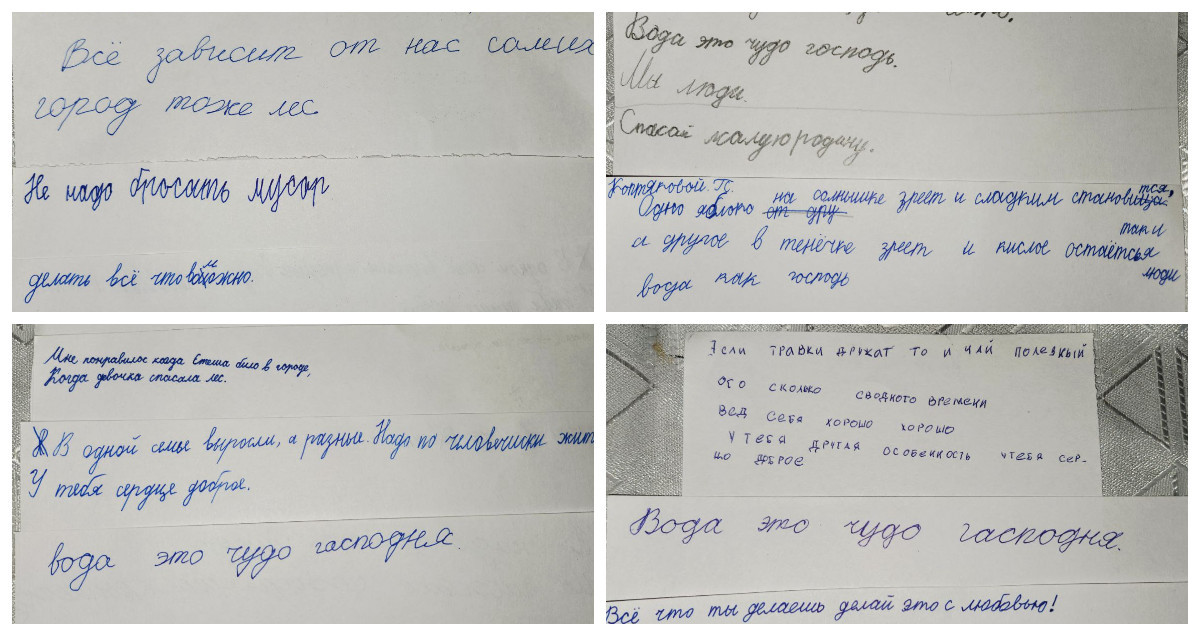 Всё зависит от нас самих
город тоже лес
Не надо бросать мусор
делать всё что возможно.
Вода это чудо господь.
Мы люди.
Спасай малую родину.
Коптяковой. П.
Одно яблоко от дру на солнышке зреет и сладким становится,
а другое в тенёчке зреет и кислое остаётся так и люди
вода как господь
Мне понравилос когда Стеша било в городе,
Когда девочка спасала лес.
В одной семье выросли, а разные. Надо по человечиски жит
У тебя сердце доброе.
вода это чудо гасподня.
Если травки дружат то и чай полезный
ого сколько сводного времени
вед себя хорошо хорошо
У тебя другая особенность у тебя сер-
цо доброе
Вода это чудо гасподня.
Всё что ты делаешь делай это с любовью!